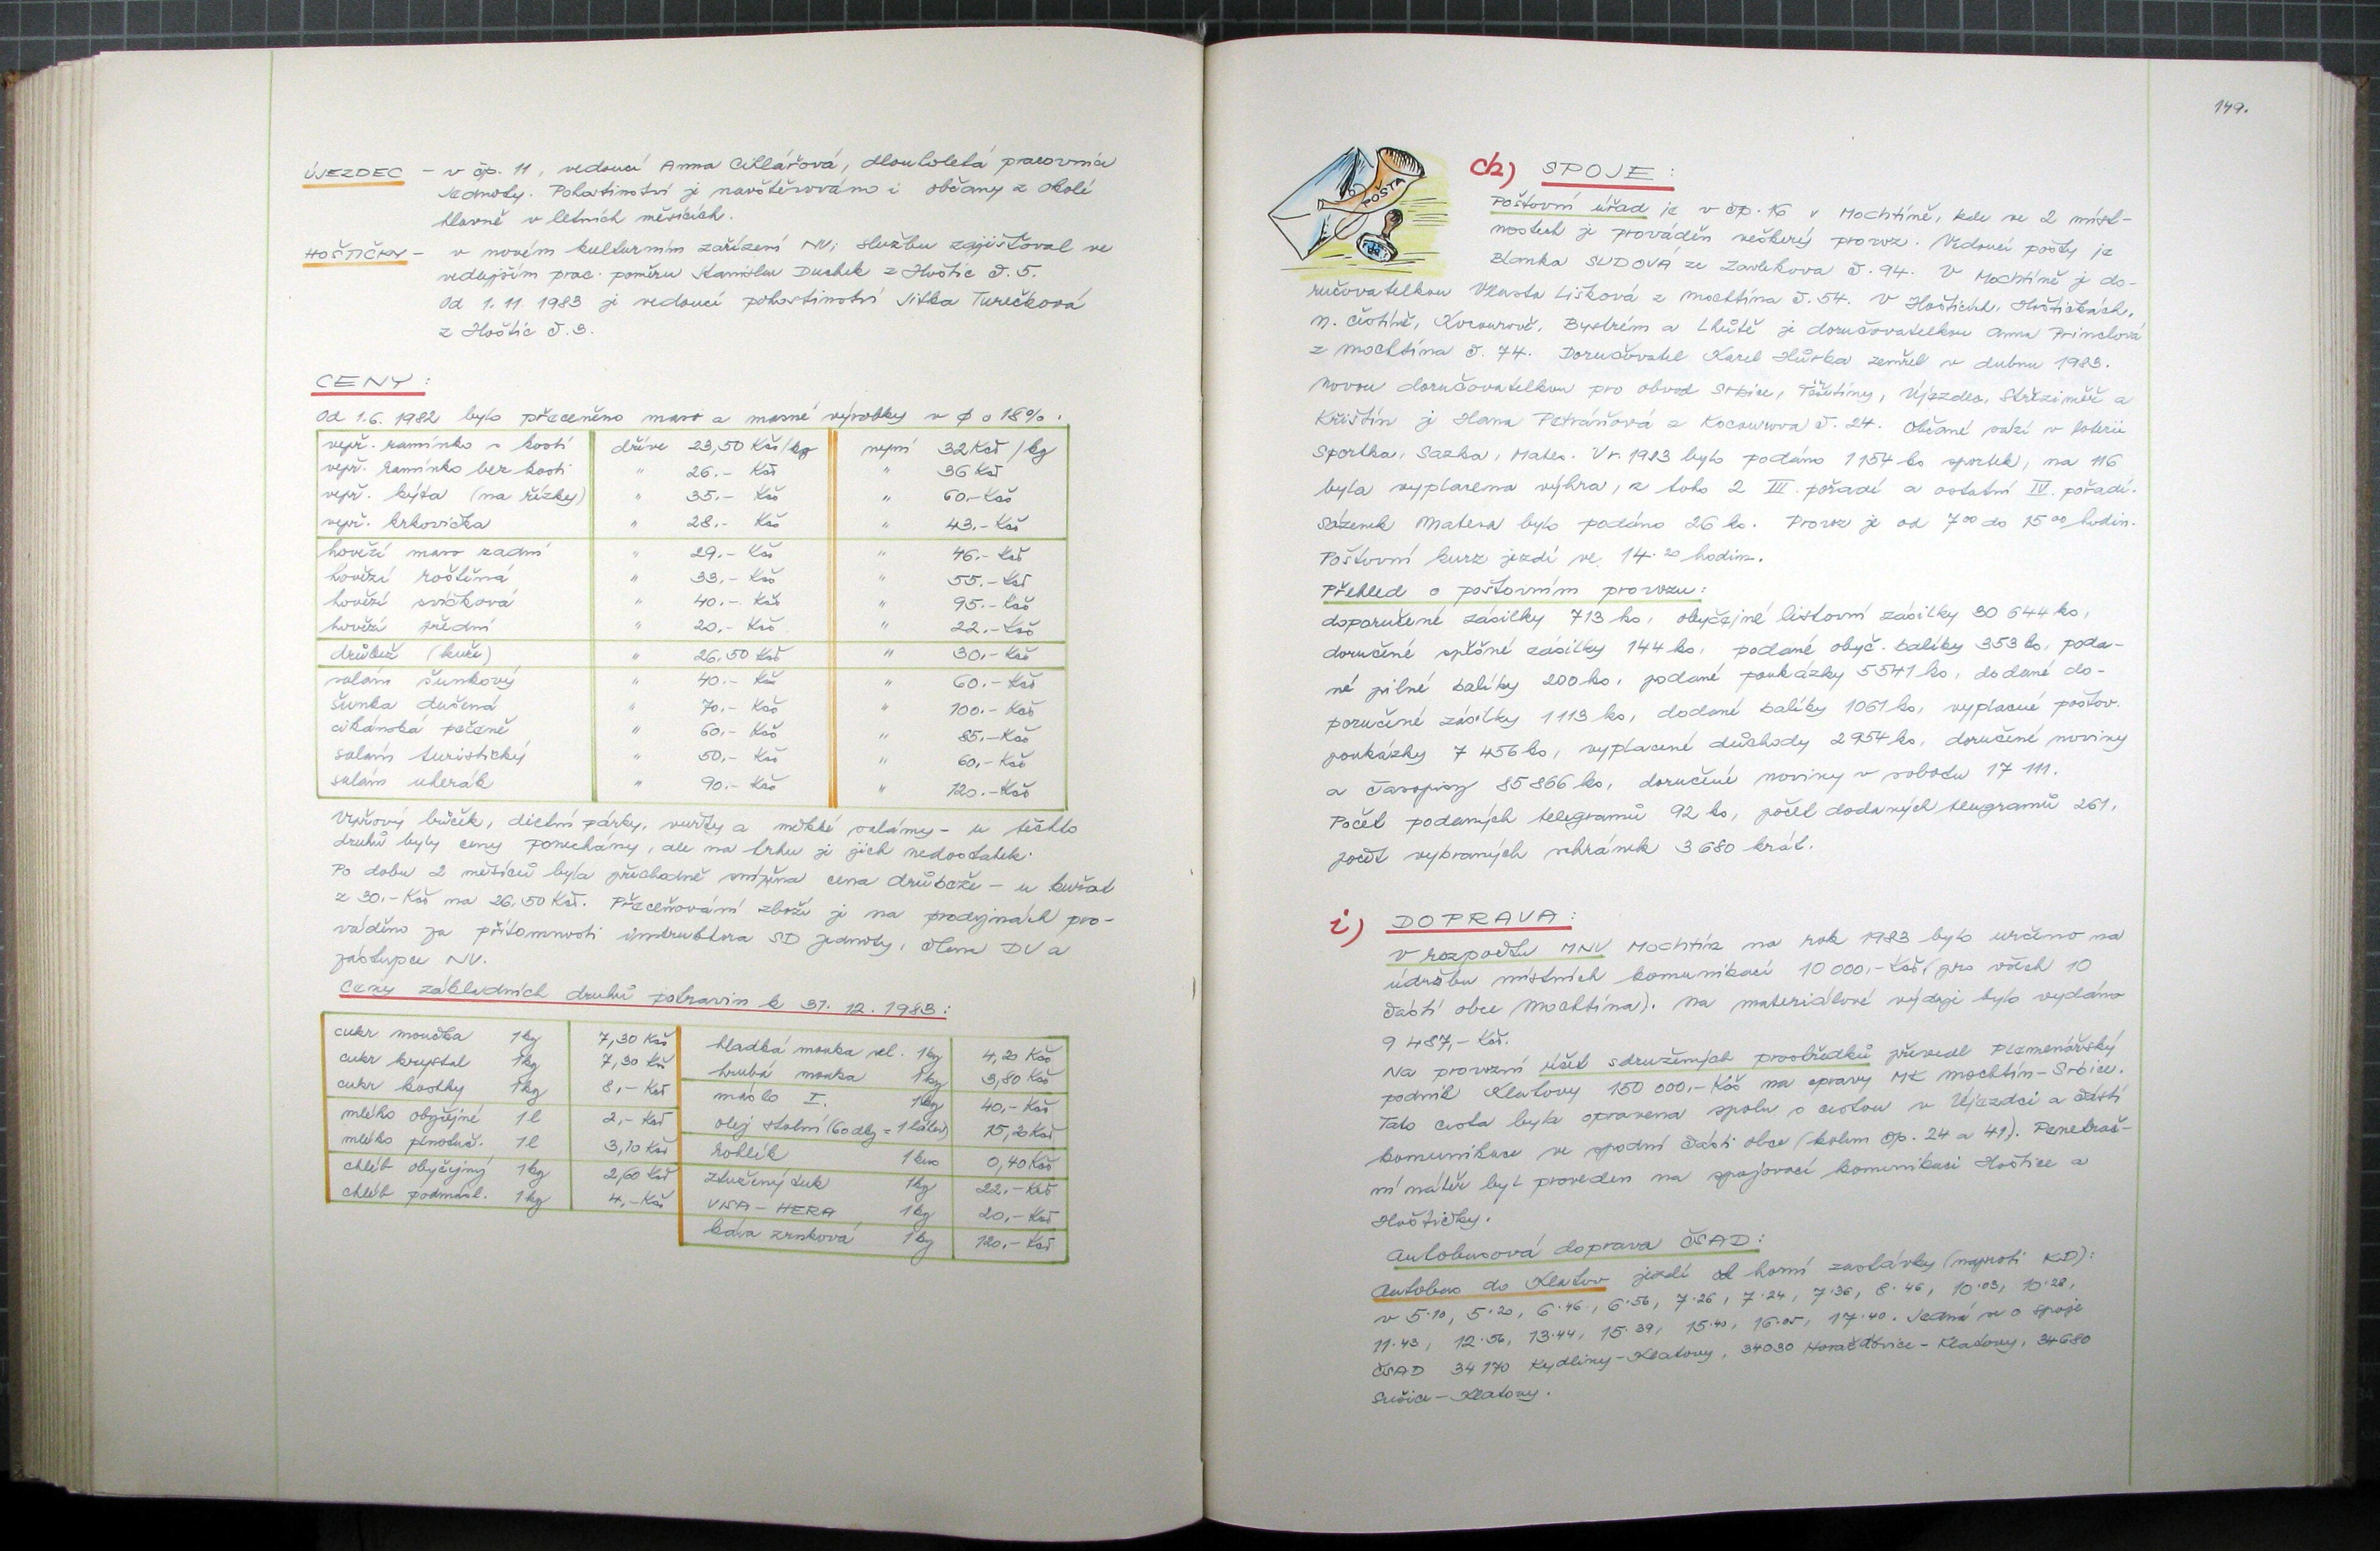 ÚJEZDEC - v čp. 11, vedoucí Anna Cihlářová, dlouholetá pracovnice
Jednoty. Pohostinství je navštěvováno i občany z okolí
hlavně v letních měsících.
HOŠTIČKY - v novém kulturním zařízení NV; službu zajišťoval ve
vedlejším prac. poměru Stanislav Duchek z Hoštic č. 5.
Od 1.11 1983 je vedoucí pohostinství Jitka Turečková
z Hoštic č. 3.
CENY:
Od 1.6. 1982 bylo přeceněno maso a masné výrobky v ø o 18%.
vepř. ramínko s kostí dříve 23,50 Kčs/kg nyní 32 Kčs /kg
vepř. ramínko bez kosti " 26.- Kčs " 36 Kčs
vepř. kýta (na řízky) " 35.- Kčs " 60,- Kčs
vepř. krkovička " 28.- Kčs " 43.- Kčs
hovězí maso zadní " 29.- Kčs " 46.- Kčs
hovězí roštěná " 33.- Kčs " 55.- Kčs
hovězí svíčková " 40.-. Kčs " 95.- Kčs
hovězí přední " 20.- Kčs " 22.- Kčs
drůbež (kuře) " 26,50 Kčs " 30,- Kčs
salám šunkový " 40.- Kčs " 60.- Kčs
šunka dušená " 70,- Kčs " 100.- Kčs
cikánská pečeně " 60,- Kčs " 85.- Kčs
salám turistický " 50,- Kčs " 60,- Kčs
salám uherák " 90.- Kčs " 120.- Kčs
Vepřový bůček, dietní párky, vuřty a měkké salámy - u těchto
druhů byly ceny ponechány, ale na trhu je jich nedostatek.
Po dobu 2 měsíců byla přechodně snížena cena drůbeže - u kuřat
z 30.- Kčs na 26,50 Kčs. Přeceňování zboží je na prodejnách pro-
váděno za přítomnosti instruktora SD Jednoty, člena DV a
zástupce NV.
Ceny základních druhů potravin k 31. 12. 1983:
cukr moučka 1kg 7,30 Kčs hladká mouka vel. 1kg 4,20 Kčs
cukr krystal 1kg 7,30 Kčs hrubá mouka 1kg 3,80 Kčs
cukr kostky 1kg 8,- Kčs máslo I. 1kg 40,- Kčs
mléko obyčejné 1l 2,- Kčs olej stolní (60 dkg = 1 láhev) 15,20 Kčs
mléko plnotuč. 1l 3,70 Kčs rohlík 1 kus 0,40 Kčs
chléb obyčejný 1kg 2,60 Kčs ztužený tuk 1kg 22.- Kčs
chléb podmásl. 1kg 4,- Kčs VISA - HERA 1kg 20,- Kčs
káva zrnková 1kg 120,- Kčs
149.
POŠTA
ch) SPOJE:
Poštovní úřad je v čp. 16 v Mochtíně, kde ve 2 míst-
nostech je prováděn veškerý provoz. Vedoucí pošty je
Blanka SUDOVÁ ze Zavlekova č. 94. V Mochtíně je do-
ručovatelkou Vlasta Lišková z Mochtína č. 54. V Hošticích, Hoštičkách,
N. Čestíně, Kocourově, Bystrém a Lhůtě je doručovatelkou Anna Princlová
z Mochtína č. 74. Doručovatel Karel Hůrka zemřel v dubnu 1983.
Novou doručovatelkou pro obvod Srbice, Těšetiny, Újezdec, Střeziměř a
Křištín je Hana Petráňová z Kocourova č. 24. Občané sází v loterii
Sportka, Sazka, Mates. V r. 1983 bylo podáno 1154 ks sportek, na 116
byla vyplacena výhra, z toho 2 III. pořadí a ostatní IV. pořadí.
Sázenek Matesa bylo podáno 26 ks. Provoz je od 7⁰⁰ do 15⁰⁰ hodin.
Poštovní kurz jezdí ve 14.²⁰ hodin.
Přehled o poštovním provozu:
doporučené zásilky 713 ks, obyčejné listovní zásilky 30 644 ks,
doručené spěšné zásilky 144 ks, podané obyč. balíky 353 ks, poda-
né pilné balíky 200 ks, podané poukázky 5541 ks, dodané do-
poručené zásilky 1113 ks, dodané balíky 1061 ks, vyplacené poštov.
poukázky 7 456 ks, vyplacené důchody 2954 ks, doručené noviny
a časopisy 85 866 ks, doručené noviny v sobotu 17 111.
Počet podaných telegramů 92 ks, počet dodaných telegramů 261,
počet vybraných schránek 3 680 krát.
i) DOPRAVA:
V rozpočtu MNV Mochtín na rok 1983 bylo určeno na
údržbu místních komunikací 10 000,- Kčs (pro všech 10
částí obce Mochtína). Na materiálové výdaje bylo vydáno
9 487,- Kčs.
Na provozní účet sdružených prostředků převedl Plemenářský
podnik Klatovy 150 000,- Kčs na opravy MK Mochtín - Srbice.
Tato cesta byla opravena spolu s cestou v Újezdci a části
komunikace ve spodní části obce (kolem čp. 24 a 41). Penetrač-
ní nátěr byl proveden na spojovací komunikaci Hoštice a
Hoštičky.
Autobusová doprava ČSAD:
Autobus do Klatov jezdí od horní zastávky (naproti KD):
v 5.10, 5.20, 6.46, 6.56, 7.26, 7.24, 7.36, 8.46, 10.03, 10.28,
11.43, 12.56, 13.44, 15.39, 15.40, 16.05, 17.40. Jedná se o spoje
ČSAD 34 170 Kydliny - Klatovy, 34030 Horažďovice - Klatovy, 34680
Sušice - Klatovy.